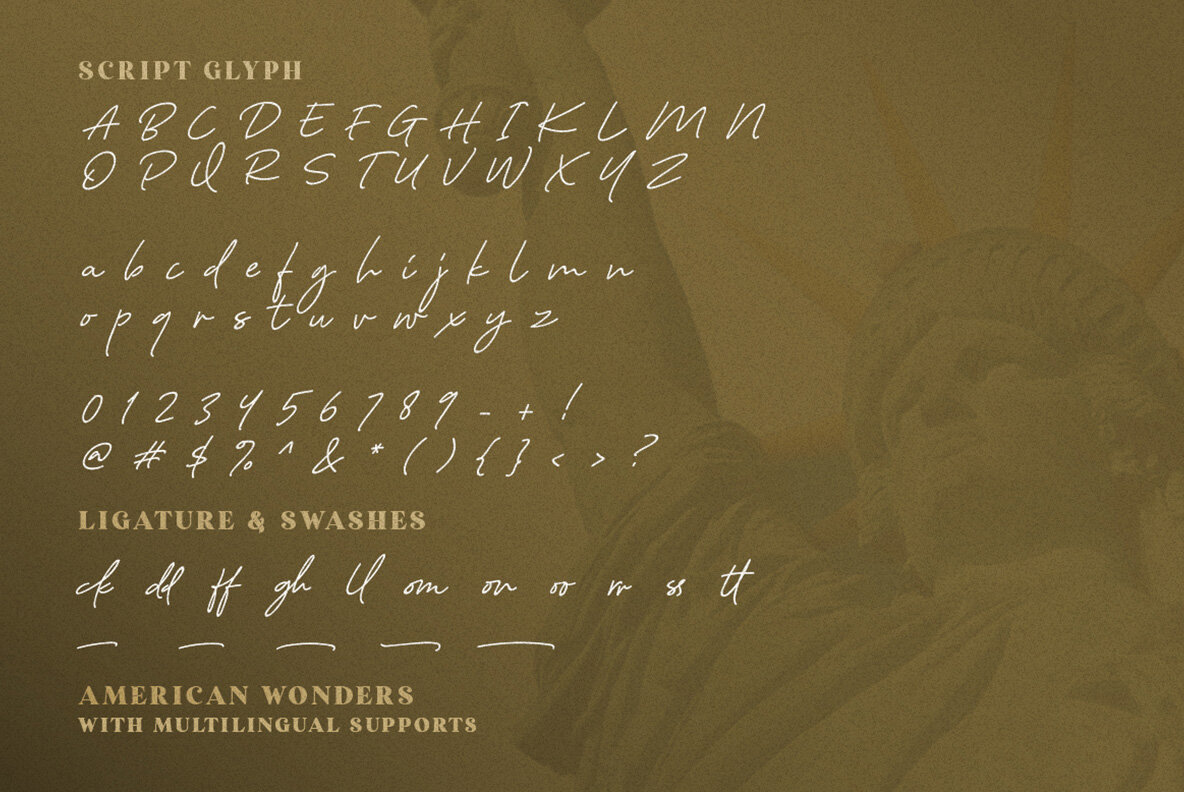 SCRIPT GLYPH
A B C D E F G H I K L M N
O P Q R S T U V W X Y Z
a b c d e f g h i j k l m n
o p q r s t u v w x y z
0 1 2 3 4 5 6 7 8 9 - + !
@ # $ % ^ & * ( ) { } < > ?
LIGATURE & SWASHES
ck dd ff gh ll om on oo rr ss tt
AMERICAN WONDERS
WITH MULTILINGUAL SUPPORTS